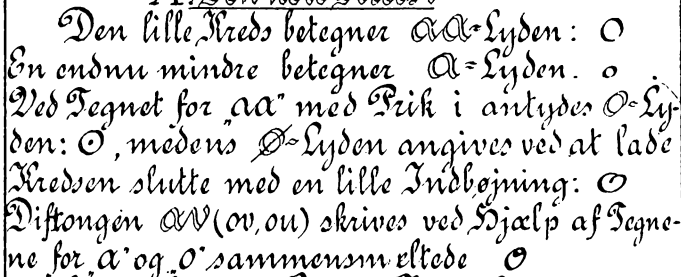 Den lille Kreds betegner AA=Lyden: O
En endnu mindre betegner A=Lyden. o
Ved Tegnet for „aa” med Prik i antydes O=Ly-
den: ʘ, medens Ø=Lyden angives ved at lade
Kredsen slutte med en lille Indbøjning:
Diftongen AV (ov, ou) skrives ved Hjælp af Tegne-
ne for „a” og „o” sammensmeltede